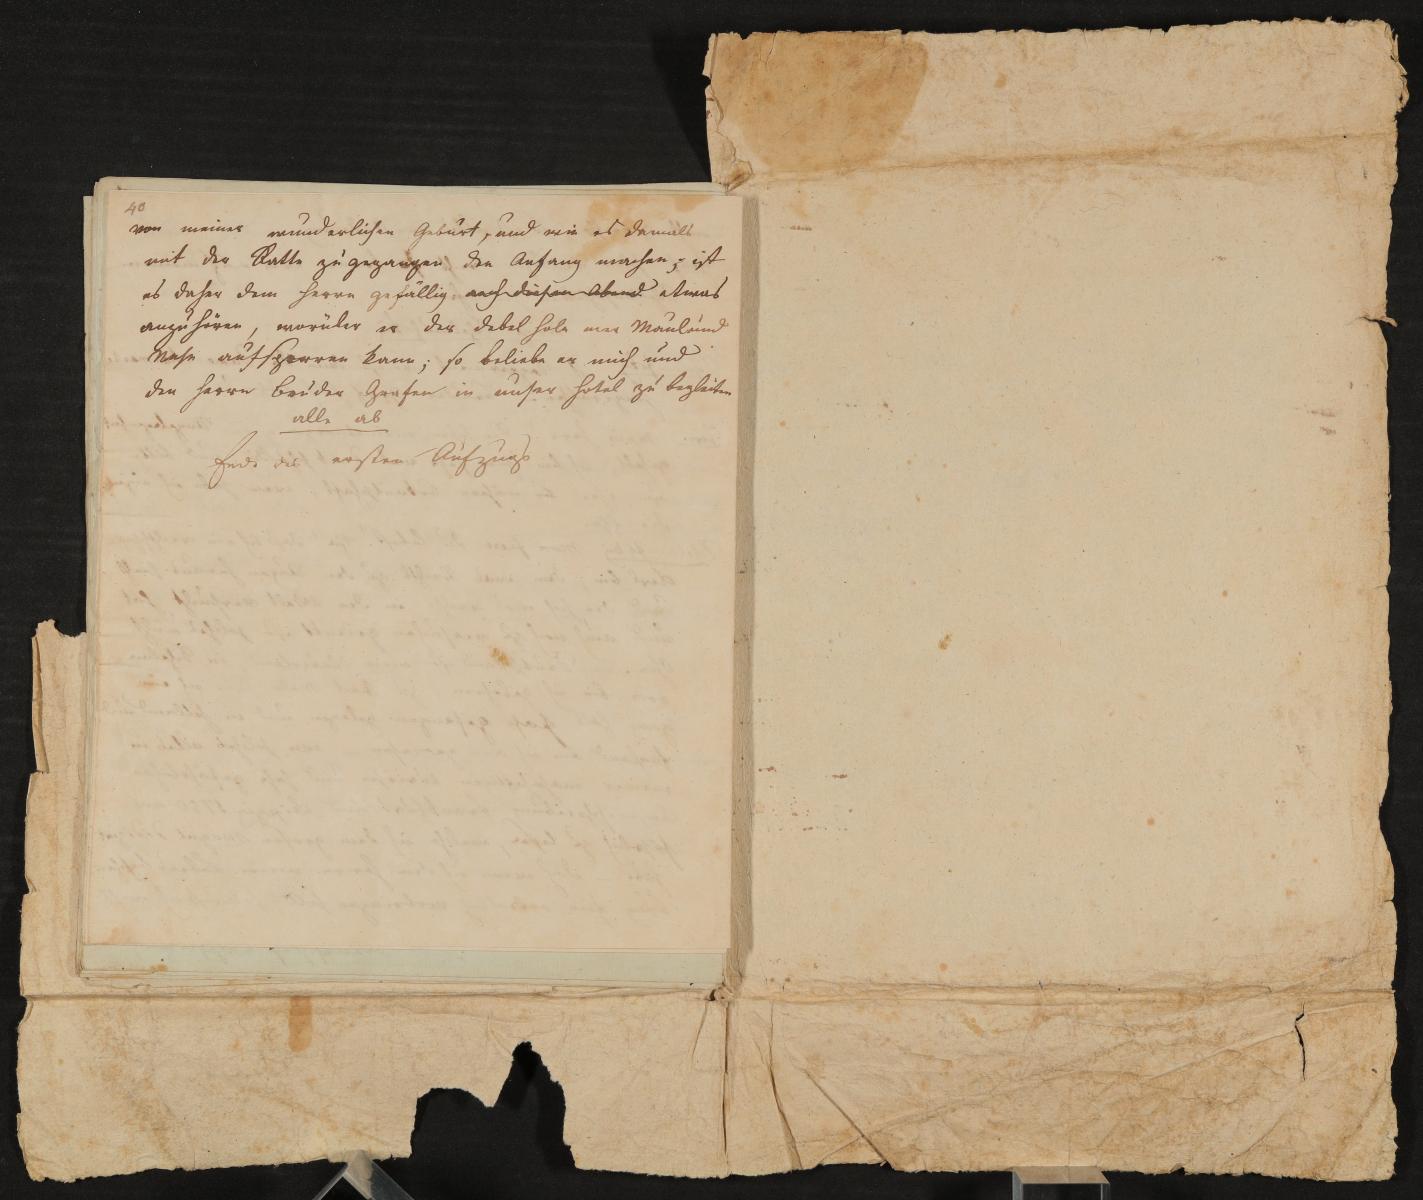 40
von meiner wunderlichen Geburt, und wie es damals
mit der Ratte zugegangen den Anfang machen; ist
es daher dem Herrn gefällig noch diesen Abend etwas
anzuhören, worüber er der debel hole mer Maul und
Nase aufsperren kann; so beliebe er mich und
den Herrn Bruder Grafen in unser Hotel zu begleiten
alle ab
Ende des ersten Aufzugs